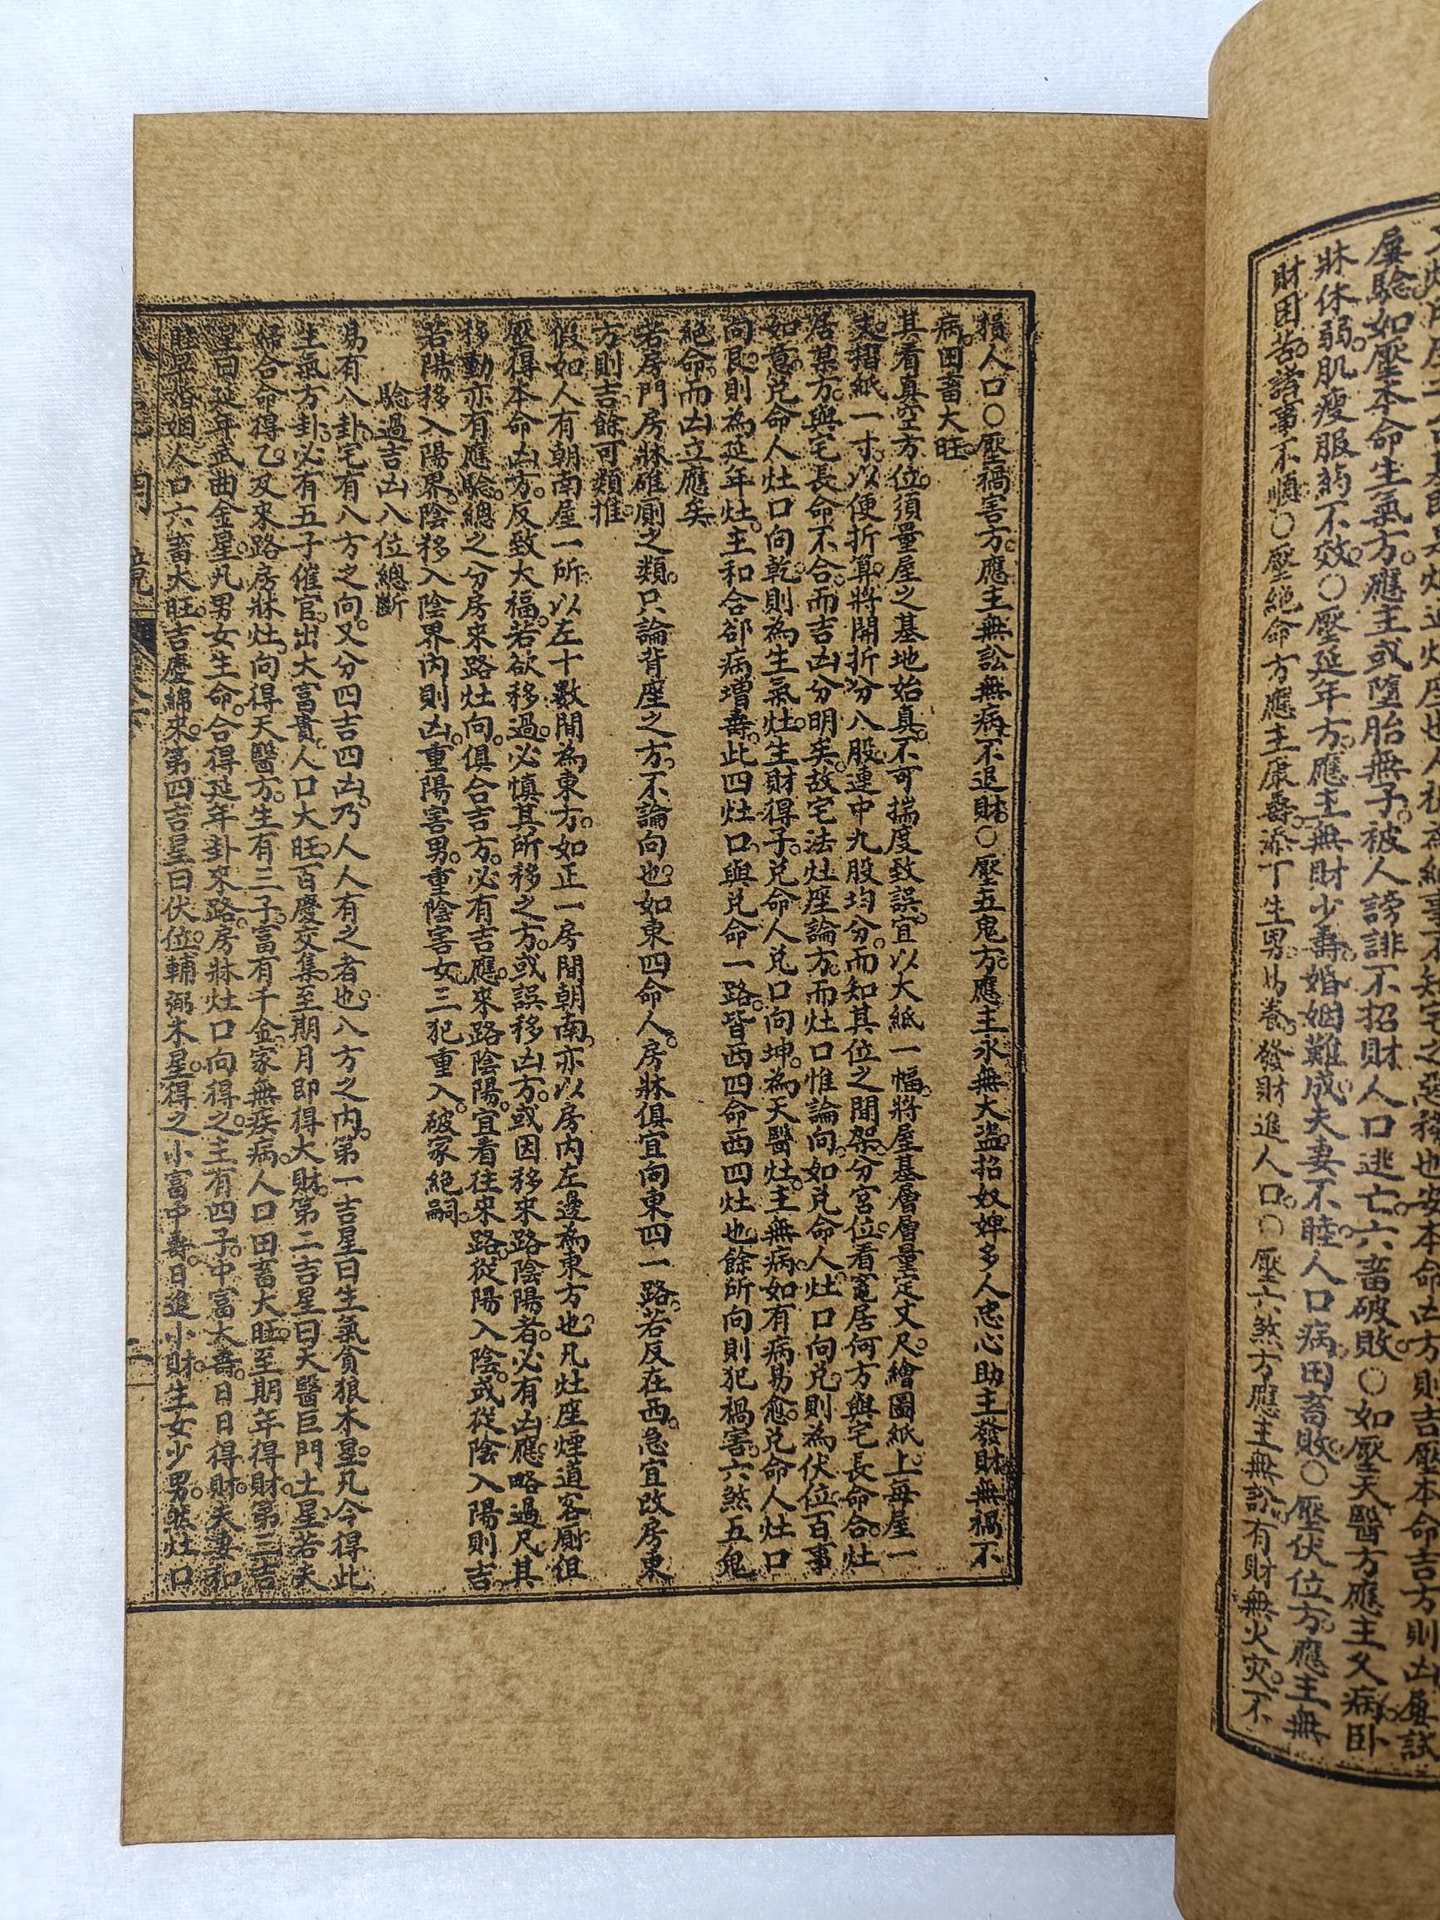 屢驗如壓本命生氣方應主或墮胎無子被人謗誹不招財人口逃亡六畜破敗○如壓天醫方應主久病臥
牀休弱肌瘦服药不效○壓延年方應主無財少壽婚姻難成夫妻不睦人口病田畜敗○壓伏位方應主無
財困苦諸事不順○壓絕命方應主康壽添丁生男 發財進人口○壓六煞方應主無訟有財無火灾不
損人口○壓禍害方應主無訟無病不退財○壓五鬼方應主永無大盜招奴婢多人忠心助主發財無禍不
病田畜大旺
其看真空方位須量屋之基地始真不可揣度致誤宜以大紙一幅將屋基層層量定丈尺繪圖紙上每屋一
丈摺紙一寸以便折算將開折分八股連中九股均分而知其位之間架分宮位看竈居何方與宅長命合灶
居某方與宅長命不合而吉凶分明矣故宅法灶座論方而灶口惟論向如兌命人灶口向兌則為伏位百事
如意兌命人灶口向乾則為生氣灶生財得子兌命人兌口向坤為天醫灶主無病如有病易愈兌命人灶口
向艮則為延年灶主和合卻病增壽此四灶口與兌命一路皆西四命西四灶也餘所向則犯禍害六煞五鬼
絕命而凶立應矣
若房門房牀碓廁之類只論背座之方不論向也如東四命人房牀俱宜向東四一路若反在西急宜改房東
方則吉餘可類推
假如人有朝南屋一所以左十數間為東方如正一房間朝南亦以房内左邊為東方也凡灶座煙道客廁但
壓得本命凶方反致大福若欲移過必慎其所移之方或誤移凶方或因移來路陰陽者必有凶應略過尺其
移動亦有應驗總之分房來路灶向俱合吉方必有吉應來路陰陽宜看往來路從陽入陰或從陰入陽則吉
若陽移入陽界陰移入陰界內則凶重陽害男重陰害女三犯重入破家絕嗣
驗過吉凶八位總斷
易有八卦宅有八方之向又分四吉四凶乃人人有之者也八方之内第一吉星曰生氣貪狼木星凡今得此
生氣方卦必有五子催官出大富貴人口大旺百慶交集至期月即得大財第二吉星曰天醫巨門土星若夫
婦合命得乙及來路房牀灶向得天醫方生有三子富有千金家無疾病人口田畜大旺至期年得財第三吉
星曰延年武曲金星凡男女生命合得延年卦來路房牀灶口向得之主有四子中富大壽日日得財夫妻和
睦早婚姻人口六畜大旺吉慶綿來第四吉星曰伏位輔弼木星得之小富中壽日進小財生女少男然灶口